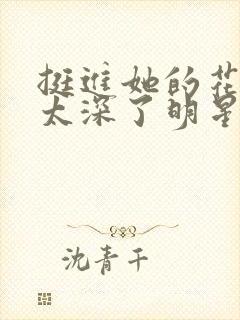 挺进她的花
太深了明星
沈青干